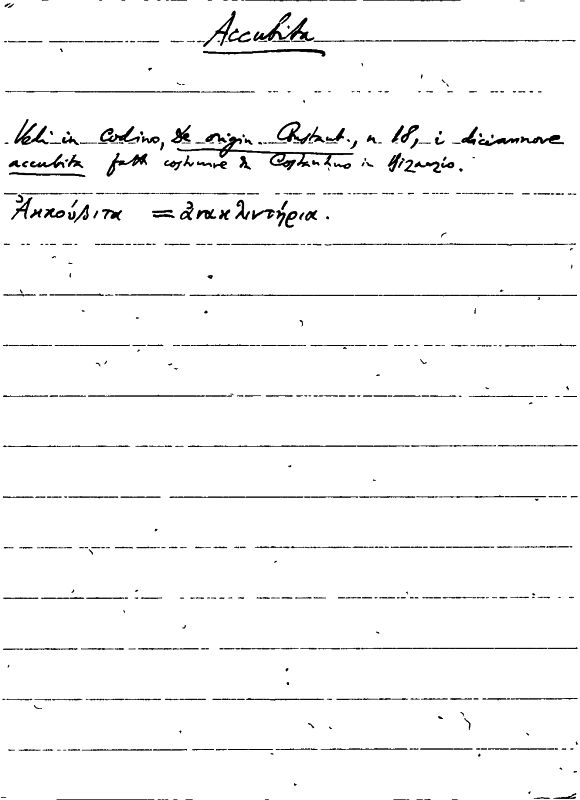 Accubita
Vedi in Codino, De origin. Constant., n. 18, i diciannove
accubita fatti costruire da Costantino in Bizanzio.
Ἀκκούβιτα = ἀνακλιντήρια.